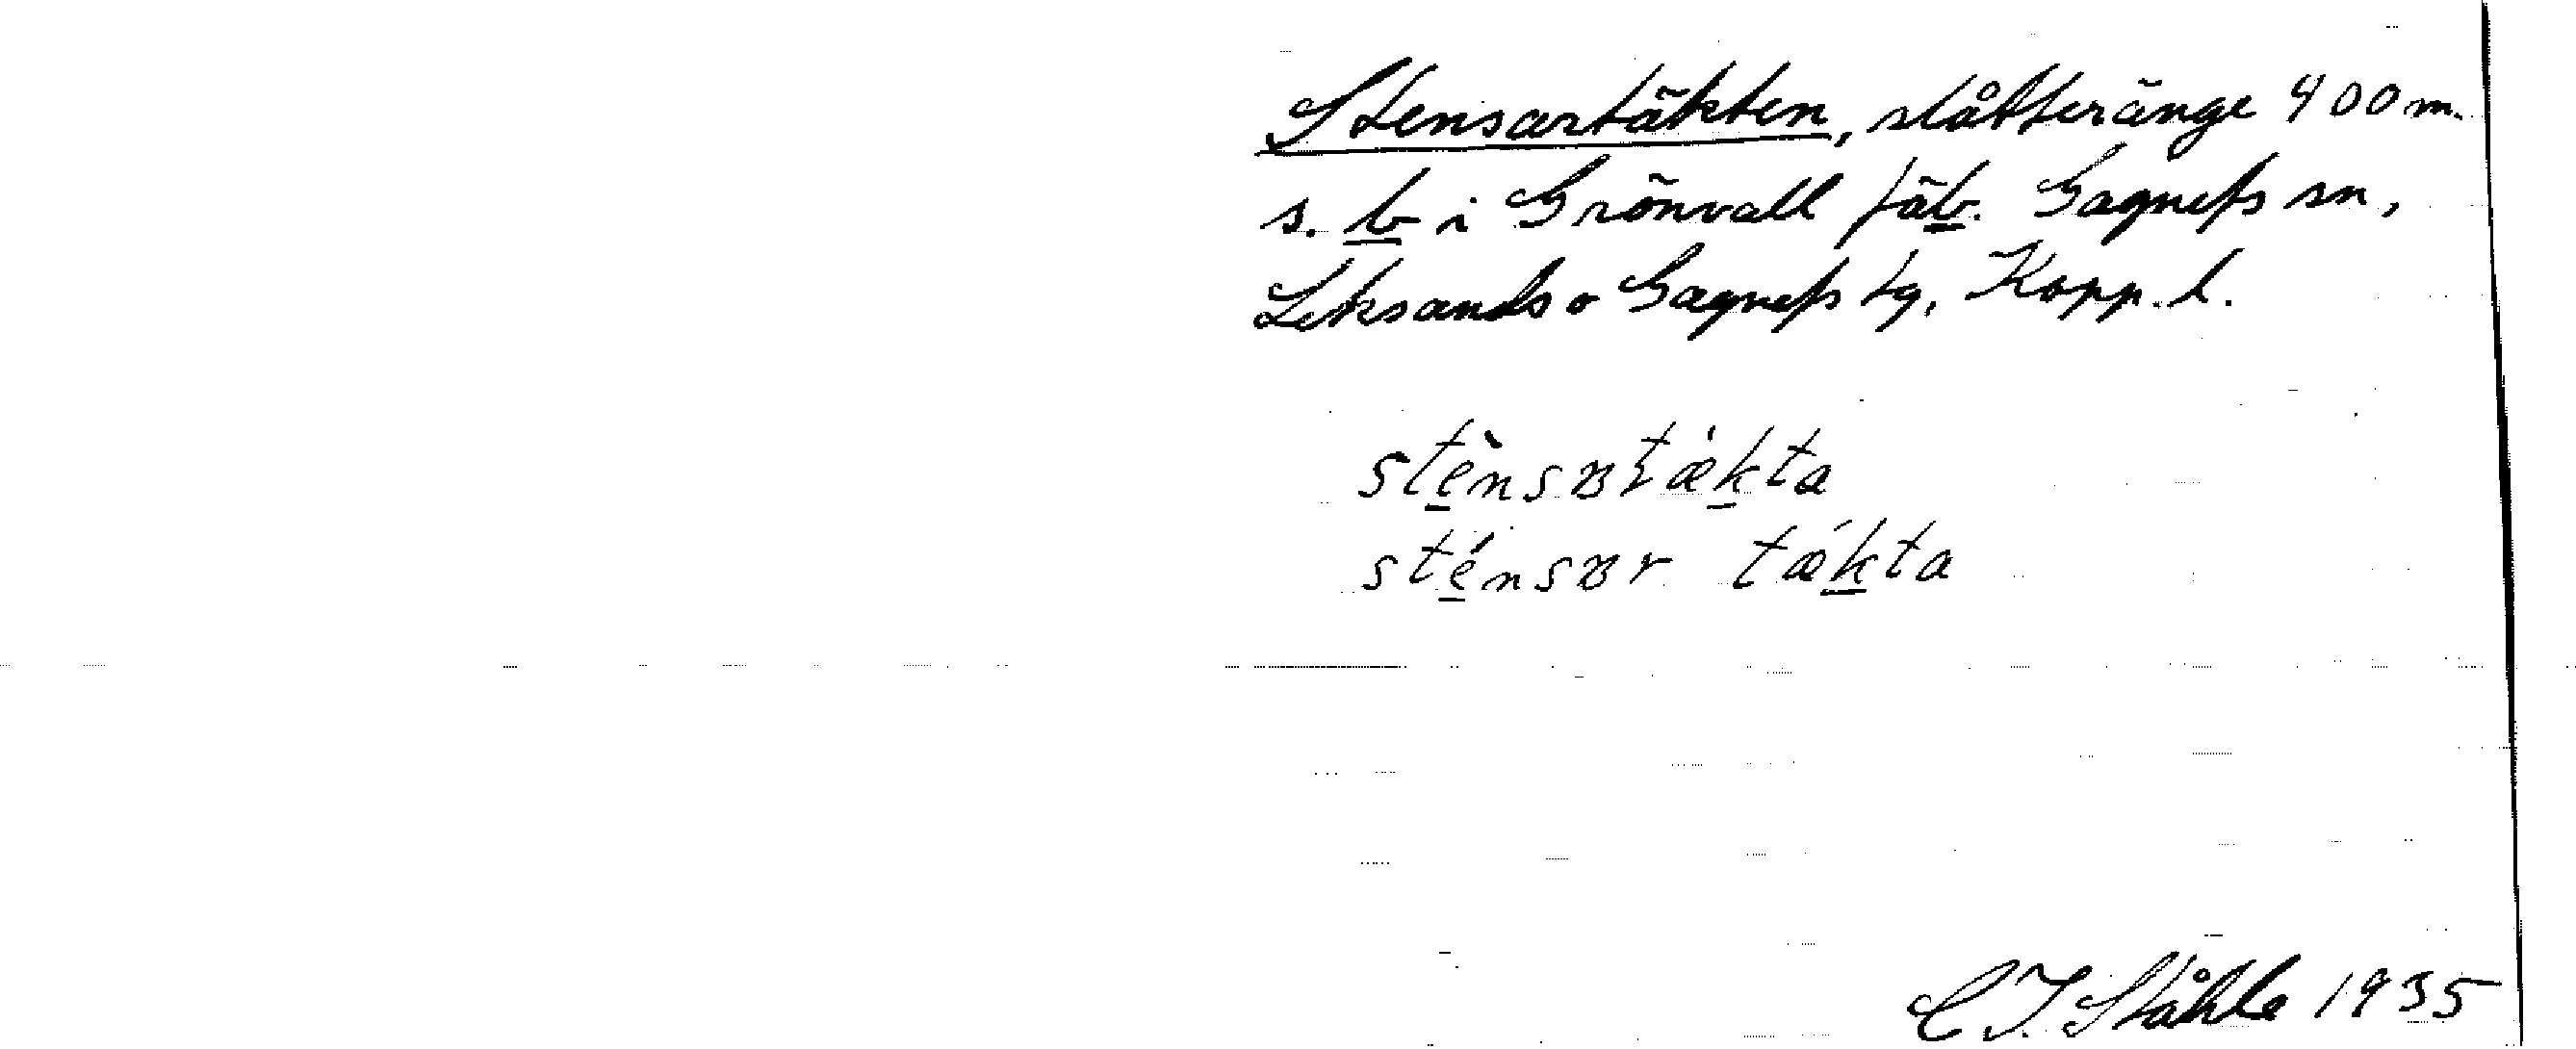 Stensartäkten, slåtteränge 400 m.
s. b i Grönvall fäb. Gagnefs sn,
Leksands o Gagnefs tg, Kopp. l.
stènsɐtǽkta
sténsɐr tǽkta
C I Ståhle 1935